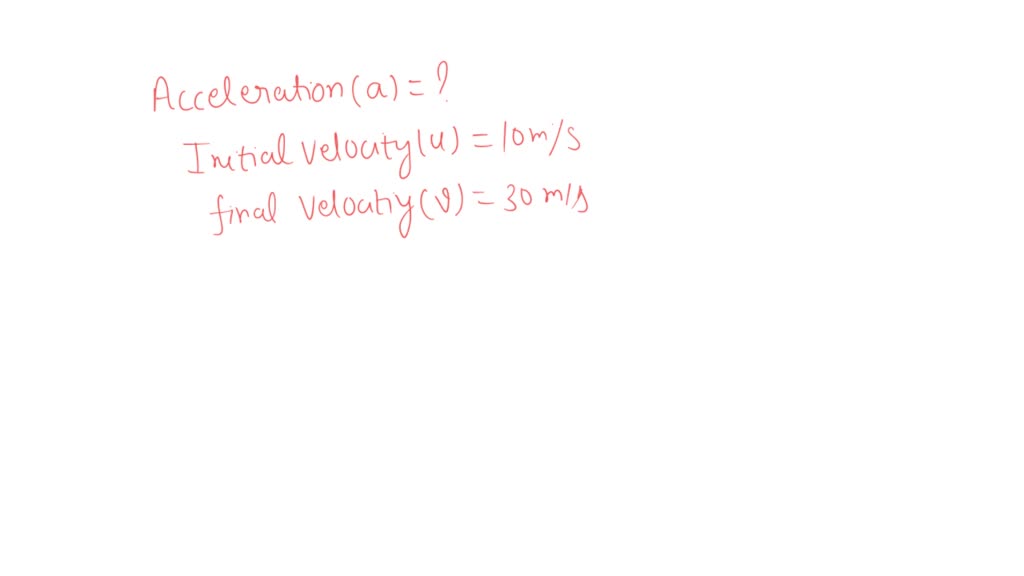 Acceleration (a) = ?
Initial velocity (u) = 10 m/s
final velocity (v) = 30 m/s